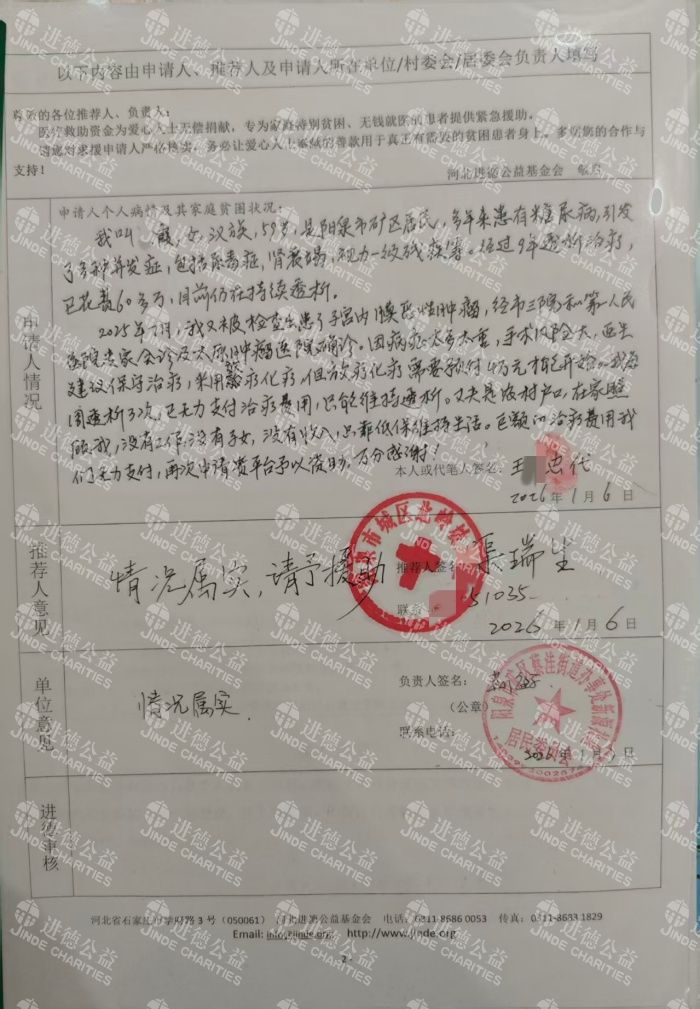 以下内容由申请人、推荐人及申请人所在单位/村委会/居委会负责人填写
尊敬的各位推荐人、负责人:
医疗救助资金为爱心人士无偿捐献,专为家庭特别贫困、无钱就医的患者提供紧急援助。
请您对求援申请人严格核实,务必让爱心人士奉献的善款用于真正有需要的贫困患者身上。多谢您的合作与
支持!
河北进德公益基金会 敬启
申请人情况
申请人个人病情及其家庭贫困状况:
我叫 ,女,汉族,59岁,是阳泉市矿区居民,多年来患有糖尿病,引发
了多种并发症,包括尿毒症,肾衰竭,视力一级残疾等。经过9年透析治疗,
已花费60多万,目前仍在持续透析。
2025年7月,我又被检查出患了子宫内膜恶性肿瘤,经市三院和第一人民
医院专家会诊及太原肿瘤医院确诊。因病症太多太重,手术风险大,医生
建议保守治疗,采用放疗化疗,但放疗化疗需要预付4万元才能开始。我每
周透析3次,已无力支付治疗费用,只能维持透析。丈夫是农村户口,在家照
顾我,没有工作,没有子女,没有收入,只靠低保维持生活。巨额的治疗费用我
们无力支付,再次申请贵平台予以援助,万分感谢!
本人或代笔人签名: 王 忠代
2026年1月6日
推荐人意见
情况属实,请予援助
推荐人签名: 瑞生
联系 51035
2026年1月6日
单位意见
情况属实
负责人签名:
(公章)
联系电话:
2026年1月 日
居民委员会
进德审核
河北省石家庄市学府路3号(050061) 河北进德公益基金会 电话:0311-8686 0053 传真:0311-8633 1829
Email: info@jinde.org http://www.jinde.org
2
进德公益
JINDE CHARITIES